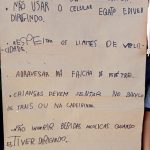 • NÃO USAR O CELULAR EQUATO ESTIVER
DIRIGINDO.
• RESPEITAR OS LIMITES DE VELO
CIDADE
• ATRAVESAR NA FAICHA
• CRIANSAS DEVEM SENTAR NO BANCO
DE TRAIS OU NA CADEIRINHA.
• NÃO BEBIDAS ALCOLICAS QUANDO
ESTIVER DIRIGINDO.